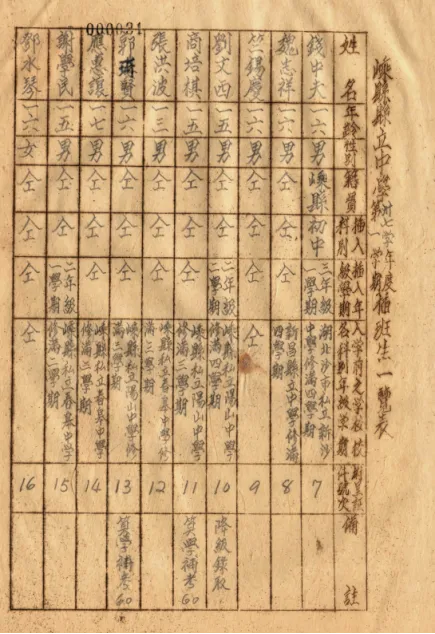 000031
嵊縣縣立中學第卅七學年度第一學期插班生一覽表
姓名 年齡 性別 籍貫 插入科別 插入年級學期 入學前之學校名稱科別年級學期 附呈證件號次 備註
錢中夫 一六 男 嵊縣 初中 三年級一學期 湖北沙市私立新沙中學修滿四學期 7
魏志祥 一六 男 仝 仝 仝 新昌縣立中學修滿四學期 8
竺錫慶 一六 男 仝 仝 仝 仝 9
劉文西 一五 男 仝 仝 二年級二學期 嵊縣私立陽山中學修滿四學期 10 降級錄取
商培棋 一五 男 仝 仝 仝 嵊縣私立陽山中學修滿三學期 11 算學補考60
張洪波 一三 男 仝 仝 仝 嵊縣私立春皋中學修滿三學期 12
郭 一六 男 仝 仝 仝 嵊縣私立陽山中學修滿三學期 13 算學補考60
應惠讓 一七 男 仝 仝 仝 嵊縣私立春皋中學修滿三學期 14
謝學民 一五 男 仝 仝 二年級一學期 嵊縣私立春皋中學修滿二學期 15
鄧水琴 一六 女 仝 仝 仝 仝 16